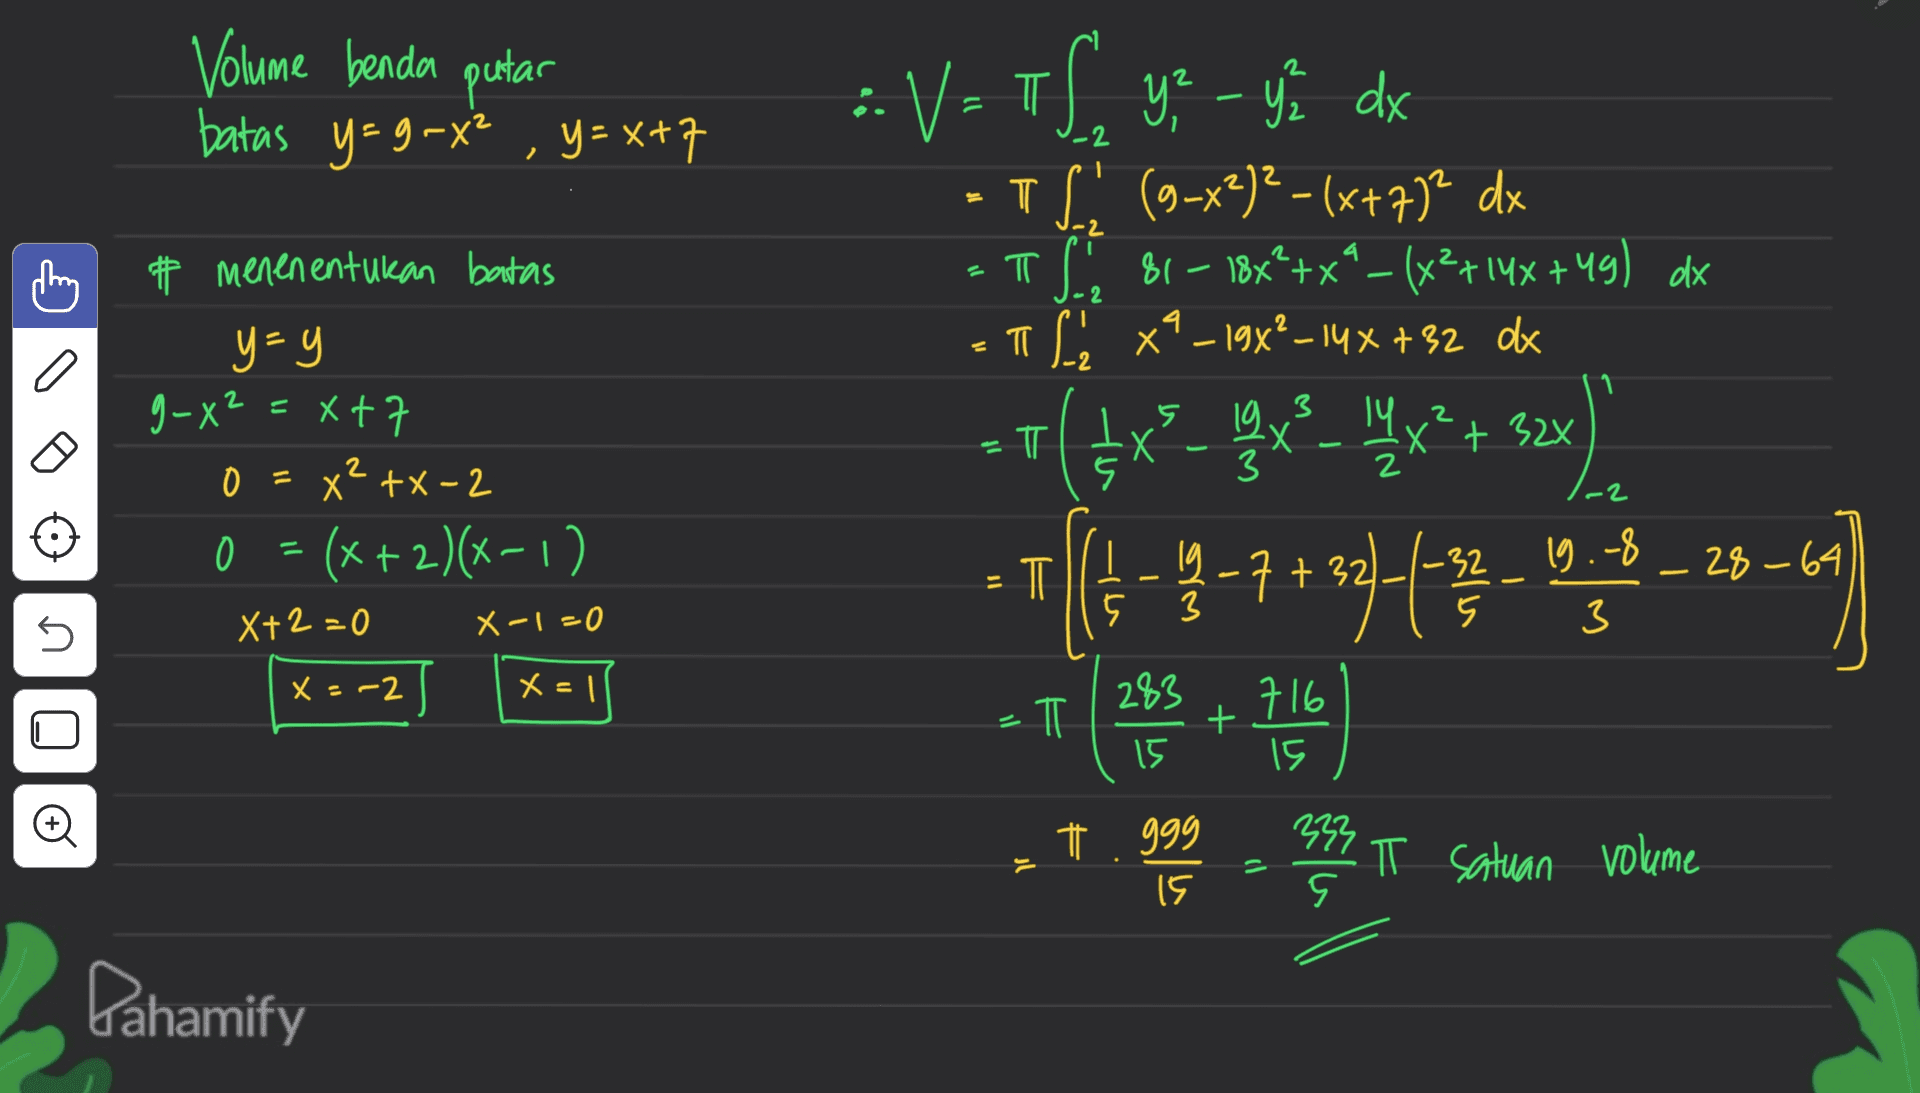 Volume benda putar
batas y = 9 - x² , y = x + 7
# menenentukan batas
y = y
9 - x² = x + 7
0 = x² + x - 2
0 = (x + 2)(x - 1)
x + 2 = 0 x - 1 = 0
x = -2 x = 1
∴ V = π ∫₋₂¹ y₁² - y₂² dx
= π ∫₋₂¹ (9 - x²)² - (x + 7)² dx
= π ∫₋₂¹ 81 - 18x² + x⁴ - (x² + 14x + 49) dx
= π ∫₋₂¹ x⁴ - 19x² - 14x + 32 dx
= π (1/5 x⁵ - 19/3 x³ - 14/2 x² + 32x)₋₂¹
= π [(1/5 - 19/3 - 7 + 32) - (-32/5 - 19.-8/3 - 28 - 64)]
= π (283/15 + 716/15)
= π . 999/15 = 333/5 π satuan volume
Pahamify